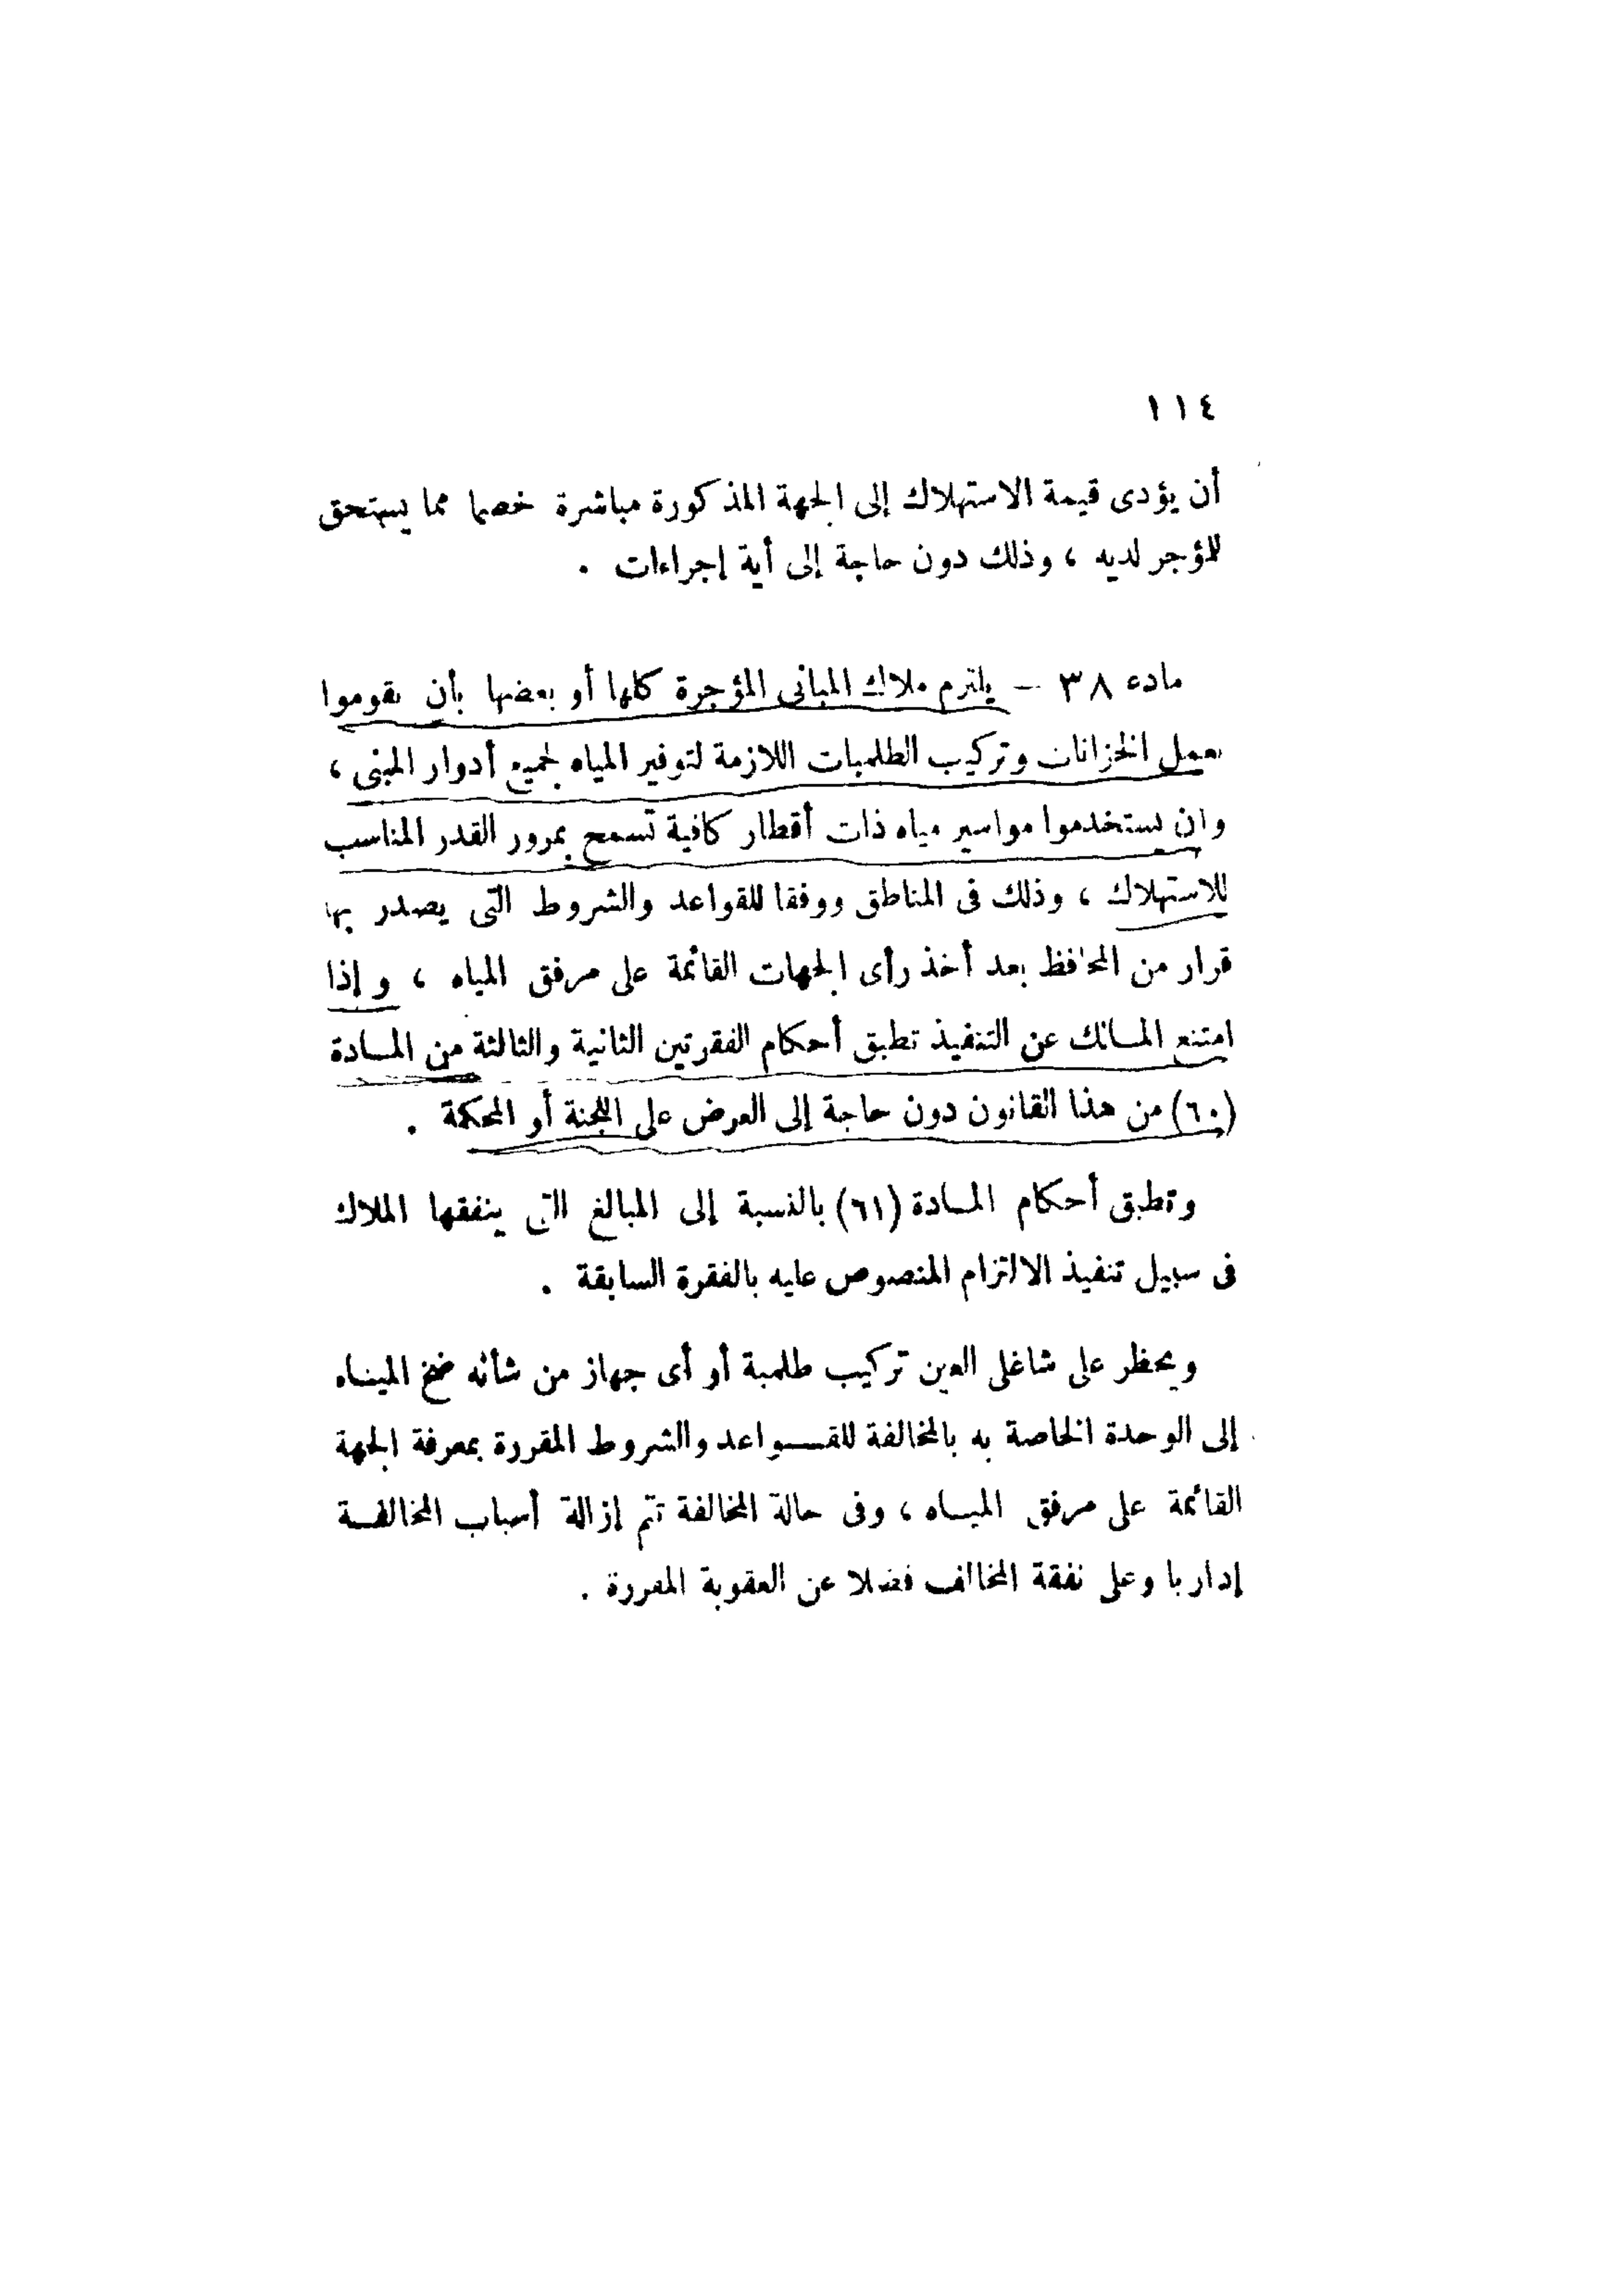 ١١٤
أن يؤدى قيمة الاستهلاك إلى الجهة المذكورة مباشرة خصما مما يستحق
للمؤجر لديه ، وذلك دون حاجة إلى أية إجراءات .
مادة ٣٨ – يلتزم ملاك المبانى المؤجرة كلها أو بعضها بأن يقوموا
بعمل الخزانات وتركيب الطلمبات اللازمة لتوفير المياه لجميع أدوار المبنى ،
وان يستخدموا مواسير مياه ذات أقطار كافية تسمح بمرور القدر المناسب
للاستهلاك ، وذلك فى المناطق ووفقا للقواعد والشروط التى يصدر بها
قرار من المحافظ بعد أخذ رأى الجهات القائمة على مرفق المياه ، وإذا
امتنع المالك عن التنفيذ تطبق أحكام الفقرتين الثانية والثالثة من المادة
(٦٠) من هذا القانون دون حاجة إلى العرض على اللجنة أو المحكمة .
وتطبق أحكام المادة (٦١) بالنسبة إلى المبالغ التى ينفقها الملاك
فى سبيل تنفيذ الالتزام المنصوص عليه بالفقرة السابقة .
ويحظر على شاغلى العين تركيب طلمبة أو أى جهاز من شأنه ضخ الميناه
إلى الوحدة الخاصة به بالمخالفة للقواعد والشروط المقررة بمعرفة الجهة
القائمة على مرفق المياه ، وفى حالة المخالفة تتم إزالة أسباب المخالفة
إداريا وعلى نفقة المخالف فضلا عن العقوبة المقررة .